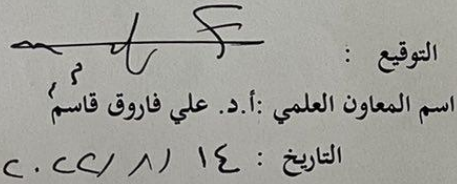 التوقيع :
اسم المعاون العلمي :أ.د. علي فاروق قاسم
التاريخ : ١٤ / ٨ / ٢٠٢٢